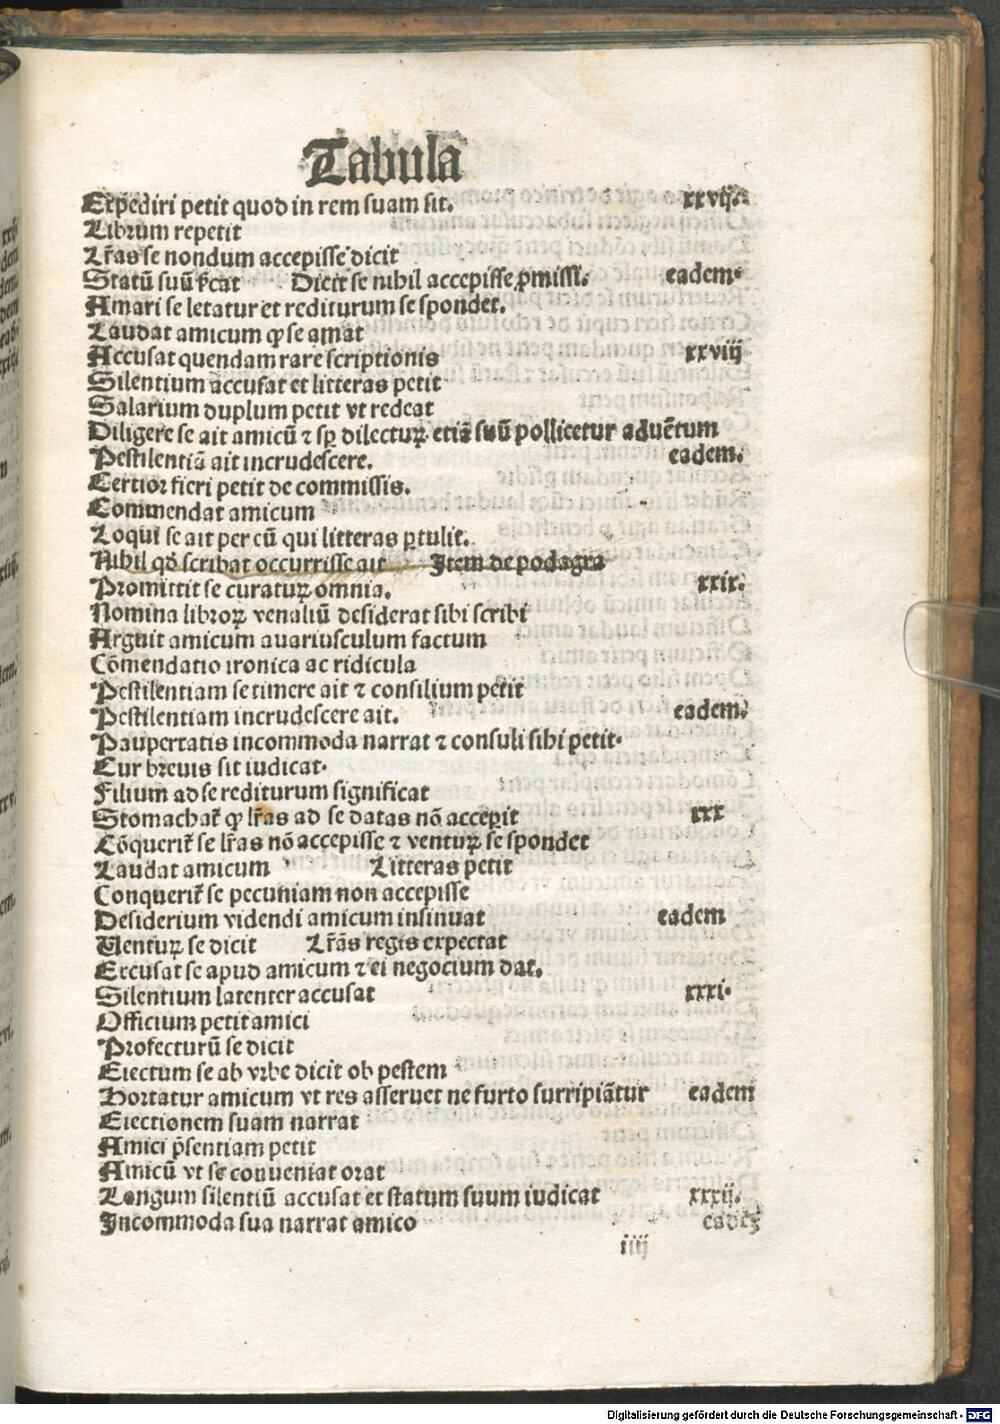 Tabula
Expediri petit quod in rem suam sit. xxvij.
Librum repetit
Lr̃as se nondum accepisse dicit
Statū suū p̃cat Dicit se nihil accepisse ꝓmissi. eadem.
Amari se letatur et rediturum se spondet.
Laudat amicum ꝙ se amat
Accusat quendam rare scriptionis xxviij
Silentium accusat et litteras petit
Salarium duplum petit vt redeat
Diligere se ait amicū ⁊ sp̱ dilecturꝝ etiā suū pollicetur aduētum
Pestilentiā ait incrudescere. eadem.
Certior fieri petit de commissis.
Commendat amicum
Loqui se ait per eū qui litteras ꝑtulit.
Nihil qd̄ scribat occurrisse ait Item de podagra
Promittit se curaturꝝ omnia. xxix.
Nomina librorꝝ venaliū desiderat sibi scribi
Arguit amicum auariusculum factum
Cōmendatio ironica ac ridicula
Pestilentiam se timere ait ⁊ consilium petit
Pestilentiam incrudescere ait. eadem.
Paupertatis incommoda narrat ⁊ consuli sibi petit.
Cur breuis sit iudicat.
Filium ad se rediturum significat
Stomachat᷑ ꝙ lr̃as ad se datas nō acceperit xxx
Cōquerit᷑ se lr̃as nō accepisse ⁊ venturꝝ se spondet
Laudat amicum Litteras petit
Conquerit᷑ se pecuniam non accepisse
Desiderium videndi amicum insinuat eadem
Venturꝝ se dicit Lr̃as regis expectat
Excusat se apud amicum ⁊ ei negocium dat.
Silentium latenter accusat xxxi.
Officium petit amici
Profecturū se dicit
Eiectum se ab vrbe dicit ob pestem
Hortatur amicum vt res asseruet ne furto surripiātur eadem
Eiectionem suam narrat
Amici p̄sentiam petit
Amicū vt se conueniat orat
Longum silentiū accusat et statum suum iudicat xxxij.
Incommoda sua narrat amico eadeꝫ
iiij
Digitalisierung gefördert durch die Deutsche Forschungsgemeinschaft - DFG